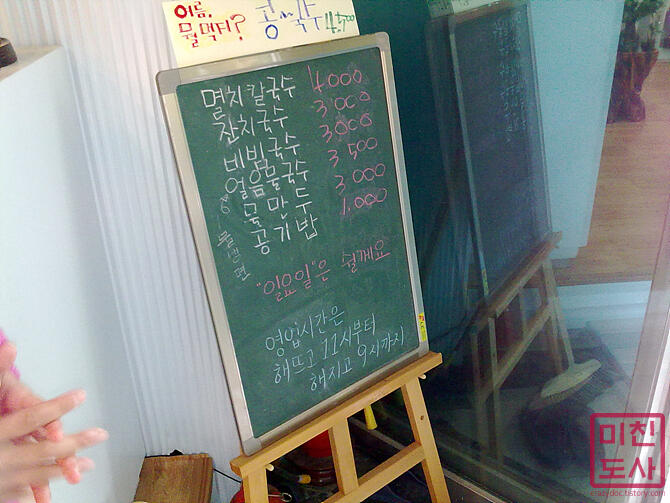 여름,
뭘먹지?
콩국수 4,500
멸치칼국수 4.000
잔치국수 3.000
비빔국수 3000
얼음물국수 3.500
물만두 3.000
공기밥 1.000
"일요일"은 쉴께요
영업시간은
해뜨고 11시부터
해지고 9시까지
미친
도사
crazydoc.tistory.com